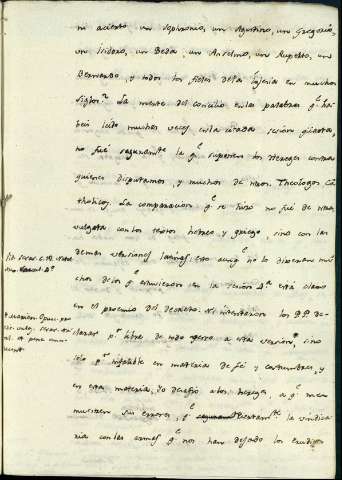 ni acierto. un Sopronio, un Agustino, un Gregorio,
un Isidoro, un Beda, un Anselmo, un Ruperto, un
Bernardo, y todos los fieles de la Iglesia en muchos
siglos. La mente del concilio en las palabras q.e ha
beis leido muchas veces en la citada sesion quarta,
no fue seguram.te la q.e suponen los Hereges contra
quienes disputamos, y muchos de nros. Theologos Ca
tholicos. La comparacion q.e se hizo no fue de nra.
vulgata con los textos hebreo y griego, sino con las
demas versiones latinas: esto aunq.e no lo dixeran mu
chos de los q.e estuvieron en la sesion 4.a está claro
en el proemio del decreto. Ni intentaron los P.P. de
clarar p.r libre de todo yerro a esta version, sino
solo p.r infalible en materia de fé y costumbres, y
en esta materia, yo desafio a los hereges, a q.e me
muestren sus errores, q.e ciertam.te la vindica
ria con las armas q.e nos han dejado los eruditos